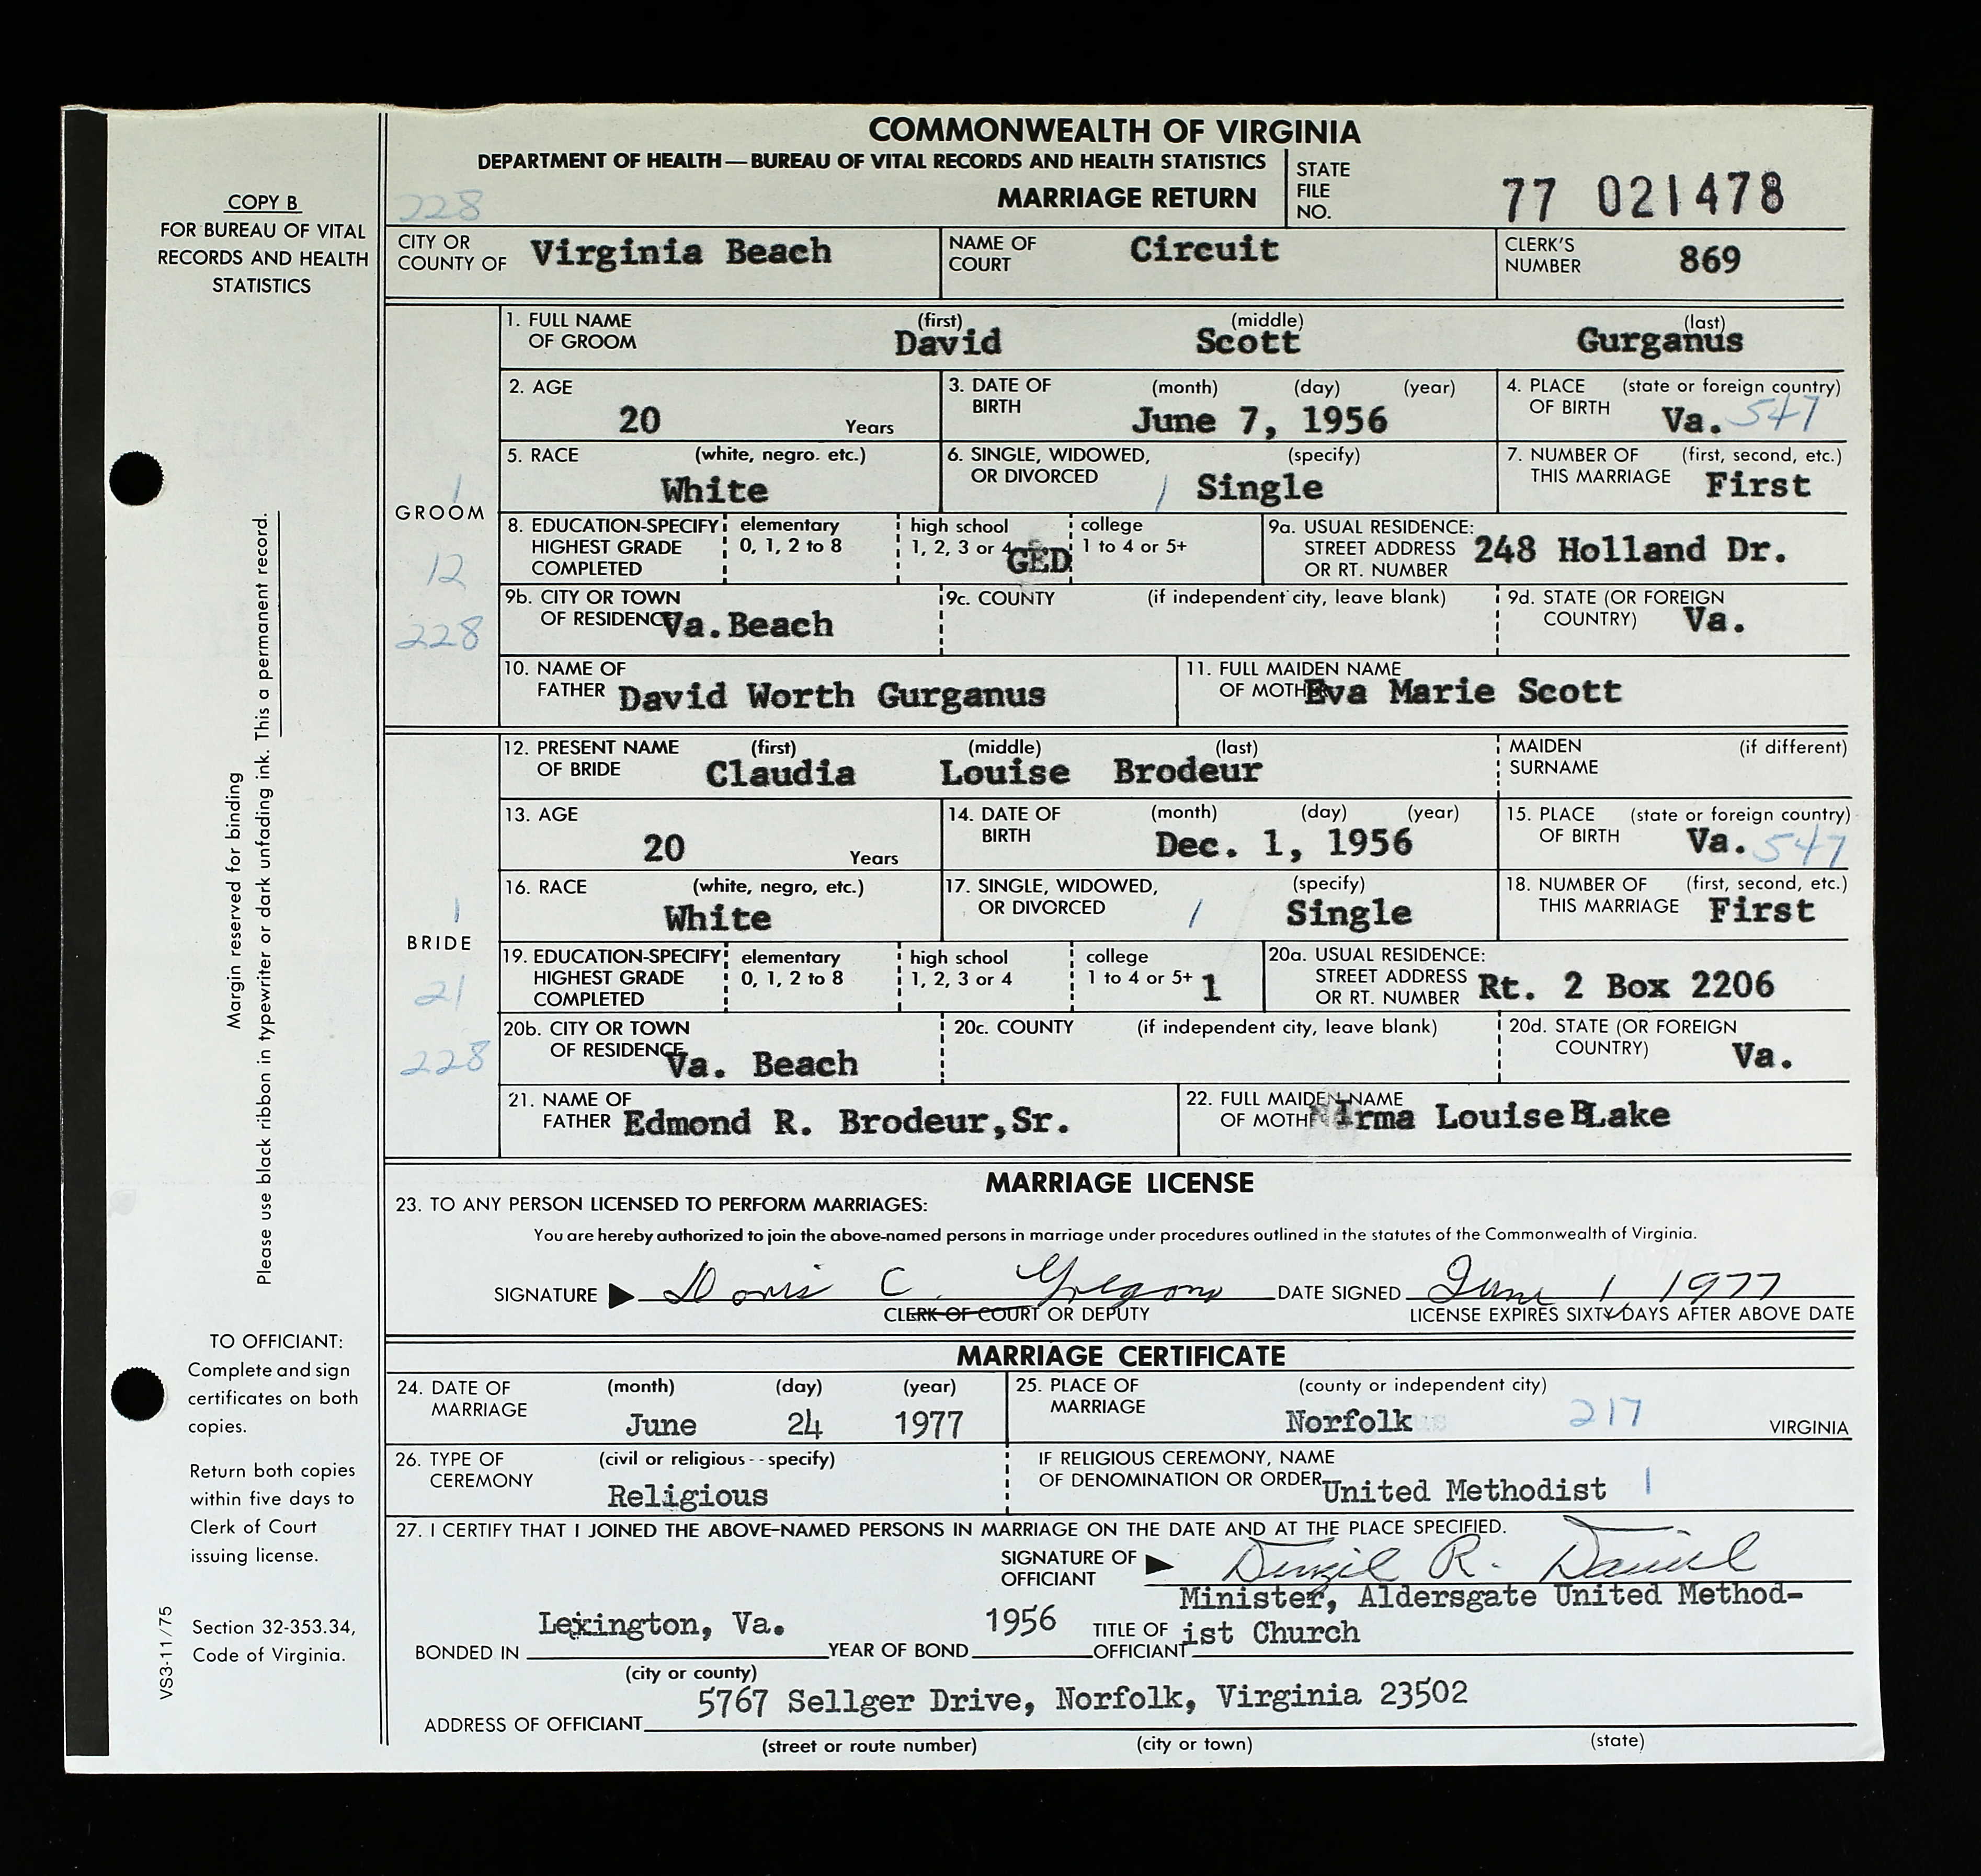 COMMONWEALTH OF VIRGINIA
DEPARTMENT OF HEALTH—BUREAU OF VITAL RECORDS AND HEALTH STATISTICS
MARRIAGE RETURN
STATE FILE NO. 77 021478
228
COPY B
FOR BUREAU OF VITAL
RECORDS AND HEALTH
STATISTICS
CITY OR COUNTY OF Virginia Beach
NAME OF COURT Circuit
CLERK'S NUMBER 869
GROOM
1
12
228
1. FULL NAME OF GROOM (first) David (middle) Scott (last) Gurganus
2. AGE 20 Years
3. DATE OF BIRTH (month) (day) (year) June 7, 1956
4. PLACE OF BIRTH (state or foreign country) Va. 547
5. RACE (white, negro. etc.) White
6. SINGLE, WIDOWED, OR DIVORCED (specify) / Single
7. NUMBER OF THIS MARRIAGE (first, second, etc.) First
8. EDUCATION-SPECIFY HIGHEST GRADE COMPLETED elementary 0, 1, 2 to 8 high school 1, 2, 3 or 4 GED college 1 to 4 or 5+
9a. USUAL RESIDENCE: STREET ADDRESS OR RT. NUMBER 248 Holland Dr.
9b. CITY OR TOWN OF RESIDENCE Va. Beach
9c. COUNTY (if independent city, leave blank)
9d. STATE (OR FOREIGN COUNTRY) Va.
10. NAME OF FATHER David Worth Gurganus
11. FULL MAIDEN NAME OF MOTHER Eva Marie Scott
BRIDE
1
21
228
12. PRESENT NAME OF BRIDE (first) Claudia (middle) Louise (last) Brodeur
MAIDEN SURNAME (if different)
13. AGE 20 Years
14. DATE OF BIRTH (month) (day) (year) Dec. 1, 1956
15. PLACE OF BIRTH (state or foreign country) Va. 547
16. RACE (white, negro, etc.) White
17. SINGLE, WIDOWED, OR DIVORCED (specify) / Single
18. NUMBER OF THIS MARRIAGE (first, second, etc.) First
19. EDUCATION-SPECIFY HIGHEST GRADE COMPLETED elementary 0, 1, 2 to 8 high school 1, 2, 3 or 4 college 1 to 4 or 5+ 1
20a. USUAL RESIDENCE: STREET ADDRESS OR RT. NUMBER Rt. 2 Box 2206
20b. CITY OR TOWN OF RESIDENCE Va. Beach
20c. COUNTY (if independent city, leave blank)
20d. STATE (OR FOREIGN COUNTRY) Va.
21. NAME OF FATHER Edmond R. Brodeur, Sr.
22. FULL MAIDEN NAME OF MOTHER Irma Louise BLake
Margin reserved for binding
Please use black ribbon in typewriter or dark unfading ink. This a permanent record.
MARRIAGE LICENSE
23. TO ANY PERSON LICENSED TO PERFORM MARRIAGES:
You are hereby authorized to join the above-named persons in marriage under procedures outlined in the statutes of the Commonwealth of Virginia.
SIGNATURE Doris C. Gregory DATE SIGNED June 1 1977
CLERK OF COURT OR DEPUTY
LICENSE EXPIRES SIXTY DAYS AFTER ABOVE DATE
MARRIAGE CERTIFICATE
24. DATE OF MARRIAGE (month) June (day) 24 (year) 1977
25. PLACE OF MARRIAGE (county or independent city) Norfolk 217 VIRGINIA
26. TYPE OF CEREMONY (civil or religious--specify) Religious
IF RELIGIOUS CEREMONY, NAME OF DENOMINATION OR ORDER United Methodist 1
27. I CERTIFY THAT I JOINED THE ABOVE-NAMED PERSONS IN MARRIAGE ON THE DATE AND AT THE PLACE SPECIFIED.
SIGNATURE OF OFFICIANT Denzil R. Daniel
BONDED IN Lexington, Va. (city or county) YEAR OF BOND 1956 TITLE OF OFFICIANT Minister, Aldersgate United Method-
ist Church
ADDRESS OF OFFICIANT 5767 Sellger Drive, Norfolk, Virginia 23502
(street or route number) (city or town) (state)
TO OFFICIANT:
Complete and sign
certificates on both
copies.
Return both copies
within five days to
Clerk of Court
issuing license.
Section 32-353.34,
Code of Virginia.
VS3-11/75